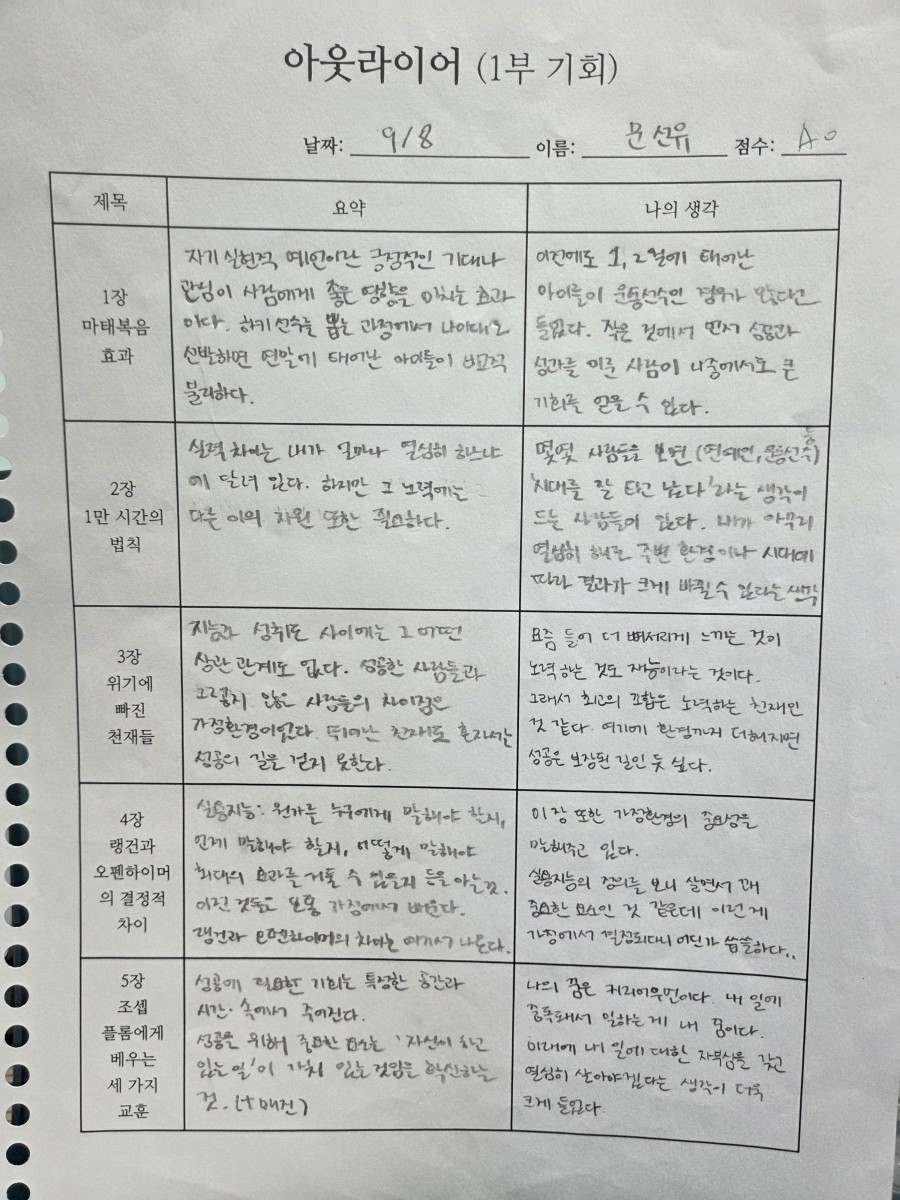 아웃라이어 (1부 기회)
날짜: 9/8 이름: 문선유 점수: A0
제목 요약 나의 생각
1장
마태복음
효과
자기 실현적 예언이란 긍정적인 기대나
관심이 사람에게 좋은 영향을 미치는 효과
이다. 하키 선수를 뽑는 과정에서 나이대로
선발하면 연말에 태어난 아이들이 비교적
불리하다.
이전에도 1, 2월에 태어난
아이들이 운동선수인 경우가 많다고
들었다. 작은 것에서 먼저 성공과
성과를 이룬 사람이 나중에서도 큰
기회를 얻을 수 있다.
2장
1만 시간의
법칙
실력 차이는 내가 얼마나 열심히 하느냐
에 달려 있다. 하지만 그 노력에는
다른 이의 차원 또한 필요하다.
몇몇 사람들을 보면 (연예인, 운동선수 등)
'시대를 잘 타고 났다'라는 생각이
드는 사람들이 있다. 내가 아무리
열심히 해도 주변 환경이나 시대에
따라 결과가 크게 바뀔 수 있다는 생각
3장
위기에
빠진
천재들
지능과 성취도 사이에는 그 어떤
상관 관계도 없다. 성공한 사람들과
그렇지 않은 사람들의 차이점은
가정환경이었다. 뛰어난 천재도 혼자서는
성공의 길을 걷지 못한다.
요즘 들어 더 뼈저리게 느끼는 것이
노력하는 것도 재능이라는 것이다.
그래서 최고의 조합은 노력하는 천재인
것 같다. 여기에 환경까지 더해지면
성공은 보장된 길인 듯 싶다.
4장
랭건과
오펜하이머
의 결정적
차이
실용지능: 뭔가를 누구에게 말해야 할지,
언제 말해야 할지, 어떻게 말해야
최대의 효과를 거둘 수 있을지 등을 아는 것.
이런 것들은 보통 가정에서 배운다.
랭건과 오펜하이머의 차이는 여기서 나온다.
이 장 또한 가정환경의 중요성을
말해주고 있다.
실용지능의 정의를 보니 살면서 꽤
중요한 요소인 것 같은데 이런 게
가정에서 결정되다니 어딘가 씁쓸하다..
5장
조셉
플롬에게
베우는
세 가지
교훈
성공에 필요한 기회는 특정한 공간과
시간 속에서 주어진다.
성공을 위해 중요한 요소는 '자신이 하고
있는 일'이 가치 있는 것임을 확신하는
것. (+ 매진)
나의 꿈은 커리어우먼이다. 내 일에
중독돼서 일하는 게 내 꿈이다.
미래에 내 일에 대한 자부심을 갖고
열심히 살아야겠다는 생각이 더욱
크게 들었다.